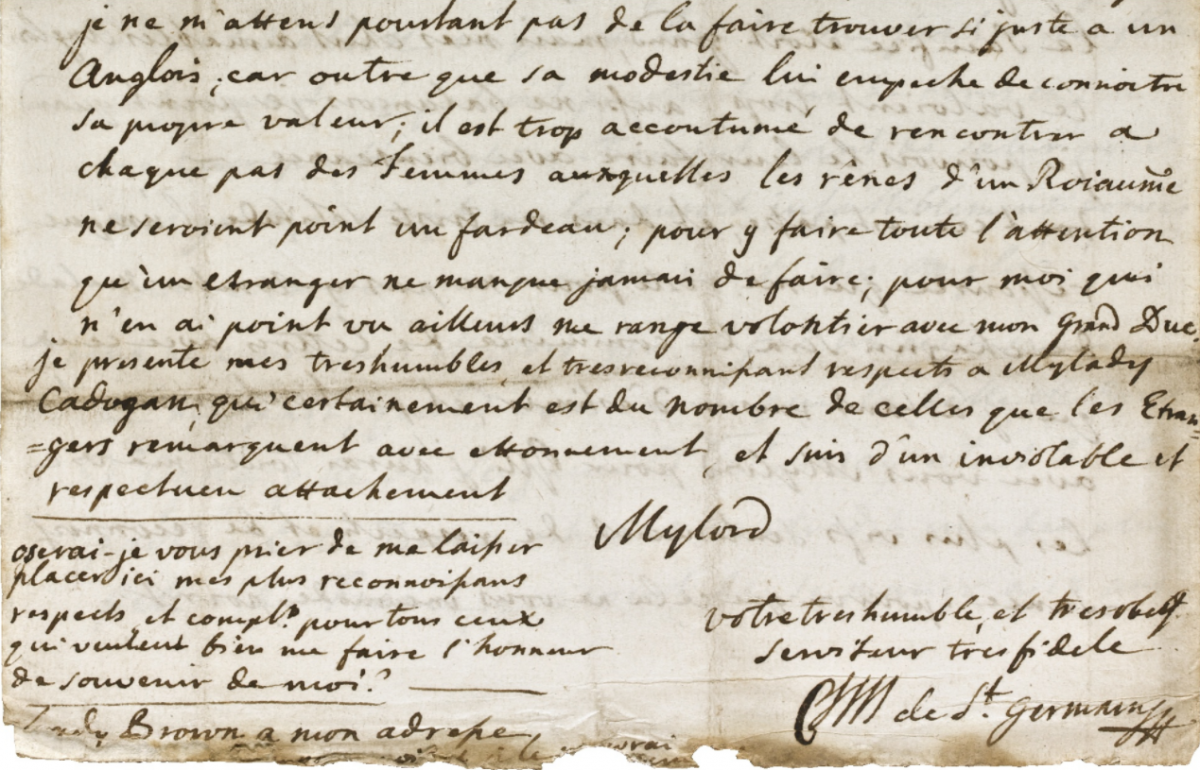 je ne m'attens pourtant pas de la faire trouver si juste a un
Anglois, car outre que sa modestie lui empeche de connoitre
sa propre valeur; il est trop accoutumé de rencontrer a
chaque pas des Femmes auxquelles les rênes d'un Roiaume
ne seroient point un fardeau; pour y faire toute l'attention
qu'un etranger ne manque jamais de faire; pour moi qui
n'en ai point vu ailleurs me range volontier avec mon Grand Duc,
je presente mes treshumbles, et tresreconnissant respects a Mylady
Cadogan, qui certainement est du nombre de celles que les Etran-
=gers remarquent avec ettonnement, et suis d'un inviolable et
respectueu attachement
Mylord
votre treshumble, et tresobet
serviteur tresfidele
de St. Germain
oserai-je vous prier de me laisser
placer ici mes plus reconnoissans
respects et complts pour tous ceux
qui veulent bien me faire l'honneur
de souvenir de moi?
Lady Brown a mon adresse